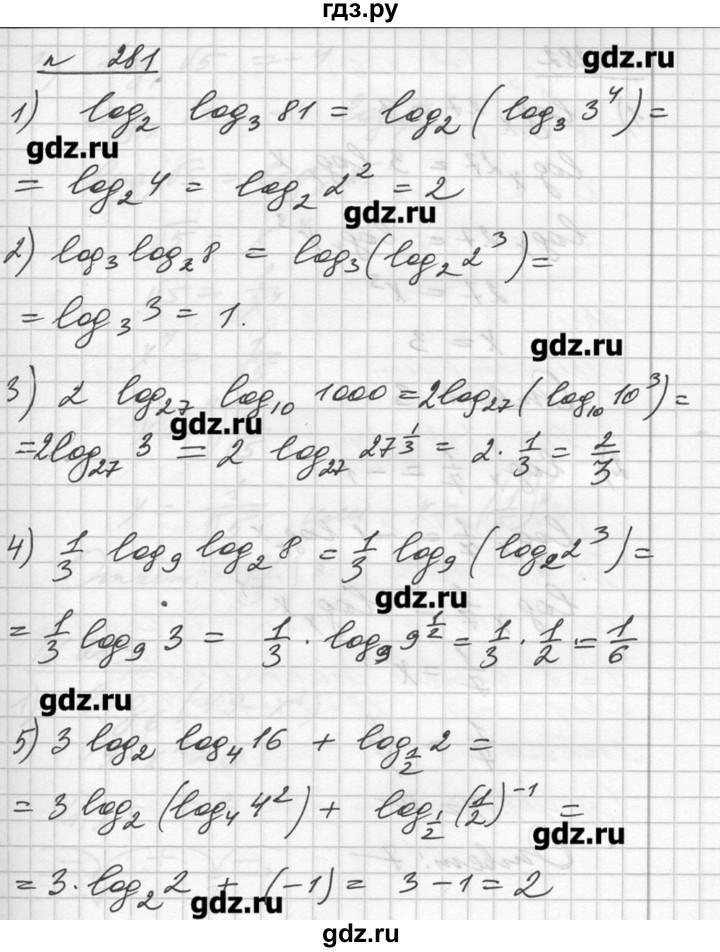 гдз.ру
№ 281
gdz.ru
1) log₂ log₃ 81 = log₂ (log₃ 3⁴) =
gdz.ru
= log₂ 4 = log₂ 2² = 2
gdz.ru
2) log₃ log₂ 8 = log₃ (log₂ 2³) =
= log₃ 3 = 1.
gdz.ru
3) 2 log₂₇ log₁₀ 1000 = 2log₂₇ (log₁₀ 10³) =
gdz.ru
= 2log₂₇ 3 = 2 log₂₇ 27^(1/3) = 2 · 1/3 = 2/3
4) 1/3 log₉ log₂ 8 = 1/3 log₉ (log₂ 2³) =
gdz.ru
= 1/3 log₉ 3 = 1/3 · log₉ 9^(1/2) = 1/3 · 1/2 = 1/6
gdz.ru
5) 3 log₂ log₄ 16 + log_(1/2) 2 =
= 3 log₂ (log₄ 4²) + log_(1/2) (1/2)⁻¹ =
gdz.ru
= 3 · log₂ 2 + (-1) = 3 - 1 = 2
gdz.ru
gdz.ru